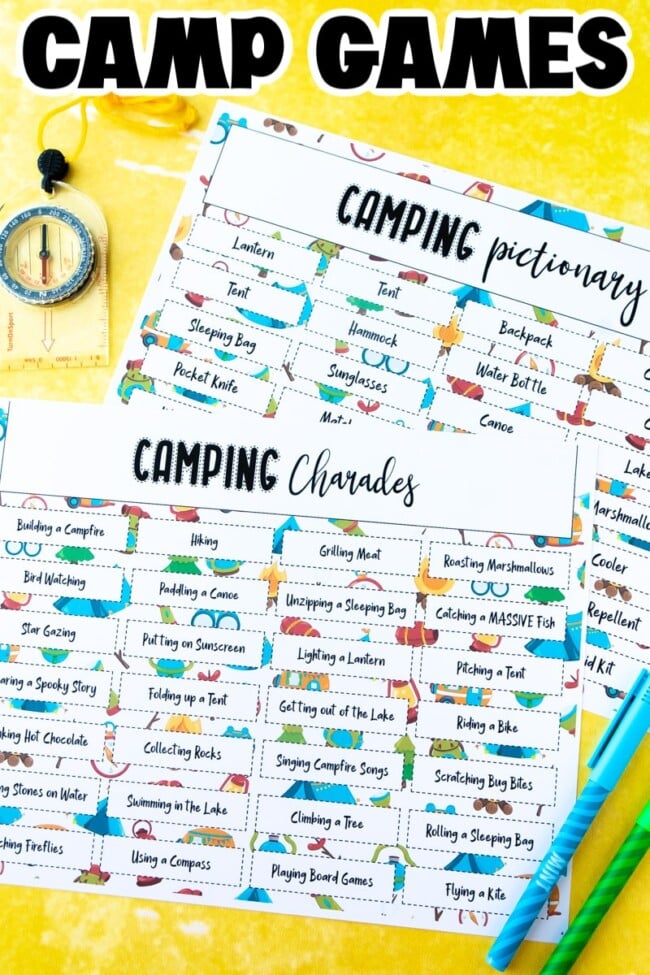 CAMP GAMES
CAMPING pictionary
Lantern Tent Backpack
Tent Hammock Water Bottle
Sleeping Bag Sunglasses Canoe Lake
Pocket Knife
Marshmallo
Cooler
Repellent
id Kit
CAMPING Charades
Building a Campfire Hiking Grilling Meat Roasting Marshmallows
Bird Watching Paddling a Canoe Unzipping a Sleeping Bag Catching a MASSIVE Fish
Star Gazing Putting on Sunscreen Lighting a Lantern Pitching a Tent
aring a Spooky Story Folding up a Tent Getting out of the Lake Riding a Bike
king Hot Chocolate Collecting Rocks Singing Campfire Songs Scratching Bug Bites
ng Stones on Water Swimming in the Lake Climbing a Tree Rolling a Sleeping Bag
ching Fireflies Using a Compass Playing Board Games Flying a Kite
TurnOnSport